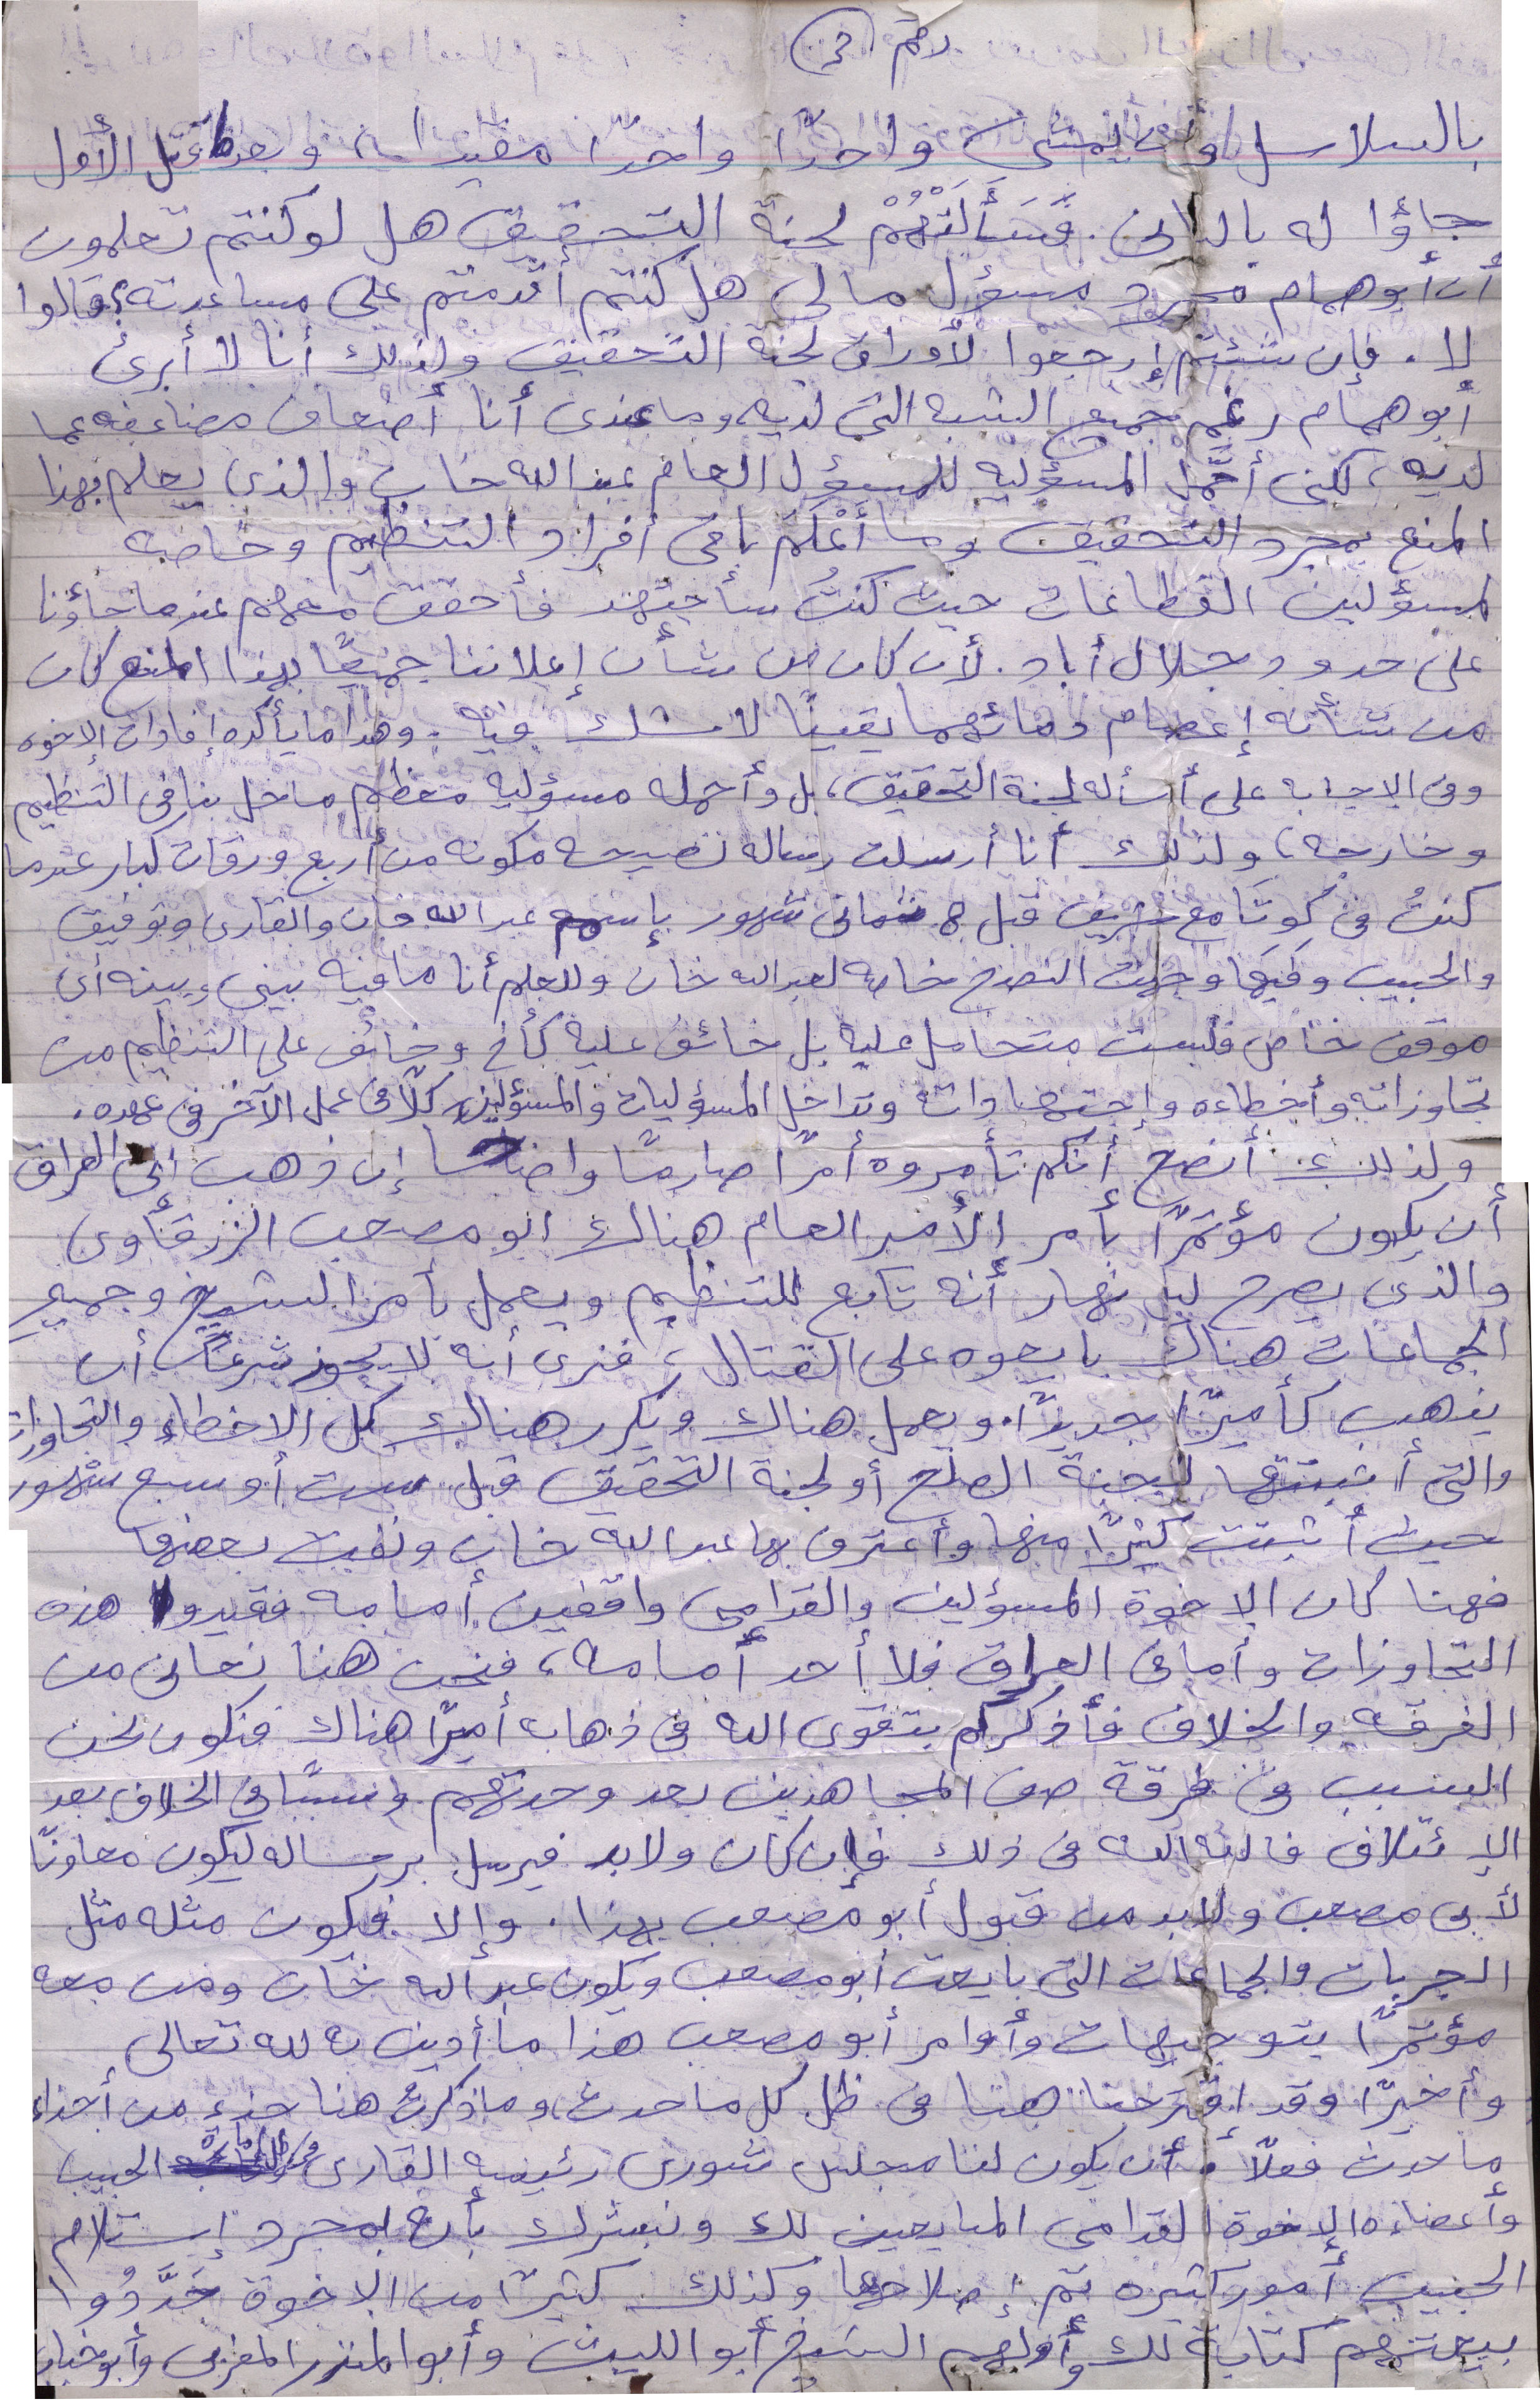 رقم (٣)
بالسلاسل وأن يمشي واحدًا واحدًا مقيدا، وبعد قتل الأول
جاؤا له بالثاني. فَسَأَلَتْهُمْ لجنة التحقيق هل لو كنتم تعلمون
أن أبو همام مجرد مسؤل مالي هل كنتم أقدمتم على مساعدته؟ قالوا
لا. فإن شئتم إرجعوا لأوراق لجنة التحقيق ولذلك أنا لا أبرئ
أبو همام رغم جميع الشبه التي لديه وما عندي أنا أضعاف مضاعفه عما
لديه، لكني أحَمِّل المسؤليه للمسؤل العام عبد الله خان والذي يعلم بهذا
المنع بمجرد التحقيق وما أعْلَمَ باقي أفراد التنظيم وخاصه
لمسؤلين القطاعات حيث كنتُ سأجتهد فأحقق معهم عندما جاؤنا
على حدود جلال أباد. لأن كان من شأن إعلاننا جميعًا بهذا المنع كان
من شأنه إعصام دمائهما يقينًا لا شك فيه. وهذا ما يأكده إفادات الإخوه
وفى الإجابه على أسأله لجنة التحقيق، بل وأحمله مسؤليه معظم ما حل بنا في التنظيم
وخارجه، ولذلك أنا أرسلت رساله نصيحه مكونه من أربع ورقات كبار عندما
كنتُ في كوتا مع شريف قبل ٨ ثمانى شهور بإسم عبد الله خان والقارى وتوفيق
والحبيب وفيها وجهت النصح خاصه لعبد الله خان وللعلم أنا ما فيه بيني وبينه أى
موقف خاص فلست متحامل عليه بل خائف عليه كأخ وخائف على التنظيم من
تجاوزاته وأخطاءه وإجتهاداته وتداخل المسؤليات والمسؤلين كلًا في عمل الآخر في عهده.
ولذلك: أنصح أنكم تأمروه أمرًا صارمًا واضحا إن ذهب إلى العراق
أن يكون مؤتمرًا بأمر الأمير العام هناك ابو مصعب الزرقاوى
والذى يصرح ليل نهار أنه تابع للتنظيم ويعمل بأمر الشيخ وجميع
الجماعات هناك بايعوه على القتال، فنرى أنه لا يجوز شرعًا أن
يذهب كأميرًا جديدًا. ويعمل هناك ويكرر هناك كل الاخطاء والتجاوزات
والتي أثبتتها لجنة الصلح أو لجنة التحقيق قبل ست أو سبع شهور
حيث أثبتت كثيرًا منها وأعترف بها عبد الله خان ونفيت بعضها
فهنا كان الإخوة المسؤلين والقدامى واقفين أمامه فقيدوا هذه
التجاوزات وأما في العراق فلا أحد أمامه، فنحن هنا نعانى من
الفرقه والخلاف فأذكركم بتقوى الله في ذهابه أميرًا هناك فنكون نحن
السبب في فرقة صف المجاهدين بعد وحدتهم وسببًا في الخلاف بعد
الإئتلاف فالله الله في ذلك فإن كان ولابد فيرسل برساله ليكون معاونًا
لأبي مصعب ولابد من قبول أبو مصعب بهذا. وإلا فيكون مثله مثل
السريات والجماعات التي بايعت أبو مصعب ويكون عبد الله خان ومن معه
مؤتمرًا بتوجيهات وأوامر أبو مصعب هذا ما أدين به لله تعالى
وأخيرًا وقد إقترحنا هنا في ظل كل ما حدث، وما ذكرتُ هنا جزء من أجزاء
ما حدث فعلًا. أن يكون لنا مجلس شورى رئيسه القارى الحبيب
وأعضاءه الإخوة القدامى المبايعين لك ونبشرك بأن بمجرد إستلام
الحبيب أمور كثيره تم إصلاحها وكذلك كثيرًا من الإخوة جَدَّدُوا
بيعتهم كتابة لك وأولهم الشيخ أبو الليث وأبو المنذر المغربى وأبو خباب